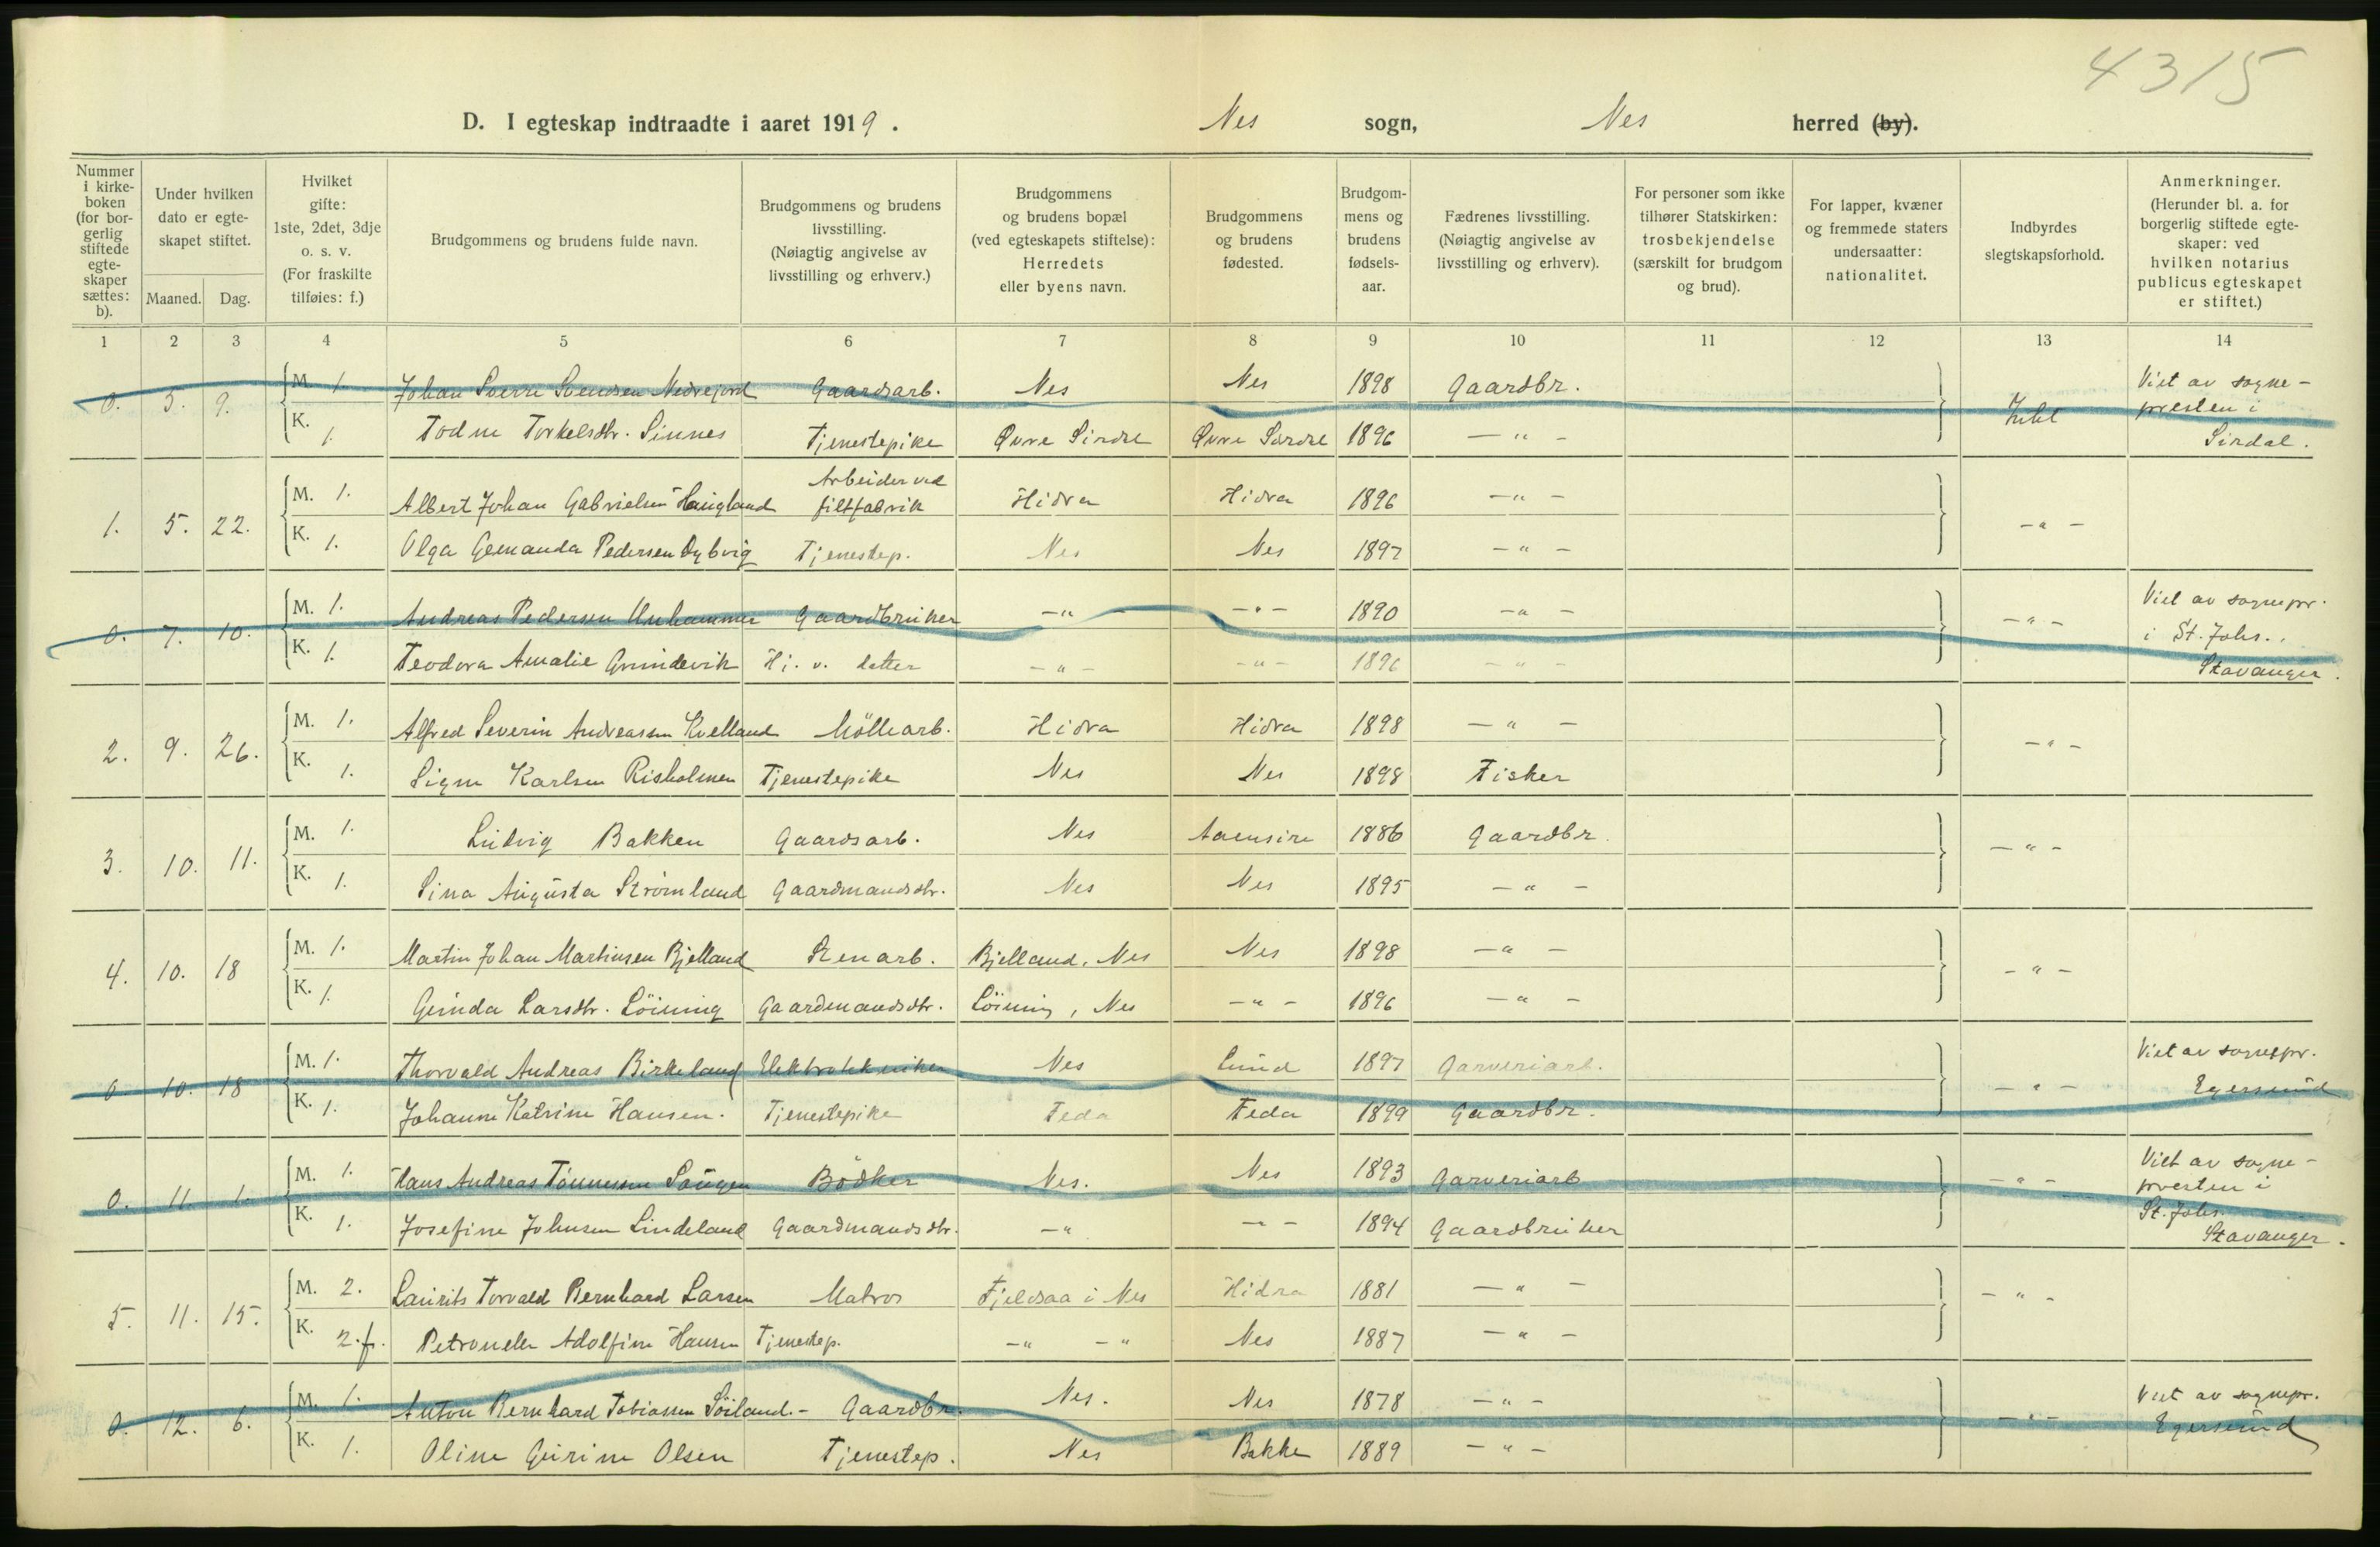 4315
D. I egteskap indtraadte i aaret 1919. Nes sogn, Nes herred (by).
Nummer i kirkeboken (for borgerlig stiftede egteskaper sættes: b).
Under hvilken dato er egteskapet stiftet.
Maaned. Dag.
Hvilket gifte: 1ste, 2det, 3dje o. s. v. (For fraskilte tilføies: f.)
Brudgommens og brudens fulde navn.
Brudgommens og brudens livsstilling. (Nøiagtig angivelse av livsstilling og erhverv.)
Brudgommens og brudens bopæl (ved egteskapets stiftelse): Herredets eller byens navn.
Brudgommens og brudens fødested.
Brudgommens og brudens fødselsaar.
Fædrenes livsstilling. (Nøiagtig angivelse av livsstilling og erhverv).
For personer som ikke tilhører Statskirken: trosbekjendelse (særskilt for brudgom og brud).
For lapper, kvæner og fremmede staters undersaatter: nationalitet.
Indbyrdes slegtskapsforhold.
Anmerkninger. (Herunder bl. a. for borgerlig stiftede egteskaper: ved hvilken notarius publicus egteskapet er stiftet.)
1 2 3 4 5 6 7 8 9 10 11 12 13 14
0. 5. 9. M. 1. Johan Sverre Svendsen Nedrejord Gaardsarb. Nes Nes 1898 Gaardbr. Intet Viet av sogne-
presten i
K. 1. Todne Torkelsdtr. Sinnes Tjenestepike Øvre Sirdal Øvre Sirdal 1896 — " - Sirdal.
1. 5. 22. M. 1. Albert Johan Gabrielsen Haugland Arbeider ved filtfabrik Hidra Hidra 1896 — " - — " -
K. 1. Olga Gemanda Pedersen Dybvig Tjenestep. Nes Nes 1897 — " -
0. 7. 10. M. 1. Andreas Pedersen Unhammer Gaardbruker — " - — " - 1890 — " - — " - Viet av sognepr.
i St. Johs.,
K. 1. Teodora Amalie Grundevik Hj. v. datter — " - — " - 1896 — " - Stavanger.
2. 9. 26. M. 1. Alfred Severin Andreassen Kvelland Möllearb. Hidra Hidra 1898 — " - — " -
K. 1. Signe Karlsen Risholmen Tjenestepike Nes Nes 1898 Fisker
3. 10. 11. M. 1. Ludvig Bakken Gaardsarb. Nes Aaensire 1886 Gaardbr. — " -
K. 1. Sina Augusta Strømland Gaardmandsdtr. Nes Nes 1895 — " -
4. 10. 18 M. 1. Martin Johan Martinsen Bjelland Stenarb. Bjelland, Nes Nes 1898 — " - — " -
K. 1. Gunda Larsdtr. Löining Gaardmandsdtr. Löining, Nes — " - 1896 — " -
0 10. 18 M. 1. Thorvald Andreas Birkeland Elektrotekniker Nes Lund 1897 Garveriarb. — " - Viet av sognepr.
Egersund
K. 1. Johanne Katrine Hansen. Tjenestepike Feda Feda 1899 Gaardbr.
0. 11. 1. M. 1. Hans Andreas Tönnessen Haugen Bödker Nes. Nes 1893 Garveriarb — " - Viet av sogne-
presten i
St. Johs.
K. 1. Josefine Johnsen Lindeland Gaardmandsdtr. — " — " - 1894 Gaardbruker Stavanger.
5. 11. 15. M. 2. Laurits Torvald Bernhard Larsen Matros Fjeldsaa i Nes Hidra 1881 — " - — " -
K. 2. f. Petronelle Adolfine Hansen Tjenestep. — " - " Nes 1887 — " -
0. 12. 6. M. 1. Anton Bernhard Tobiassen Söiland. - Gaardbr. Nes. Nes 1878 — " - — " - Viet av sognepr.
Egersund
K. 1. Oline Gurine Olsen Tjenestep. Nes Bakke 1889 — " -